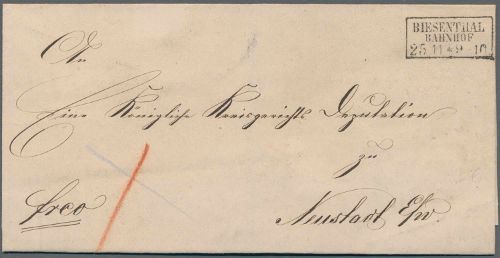 BIESENTHAL
BAHNHOF
25 11 * 9-10
An
Eine Königliche Kreisgerichts Deputation
zu
frco
Neustadt E/w.